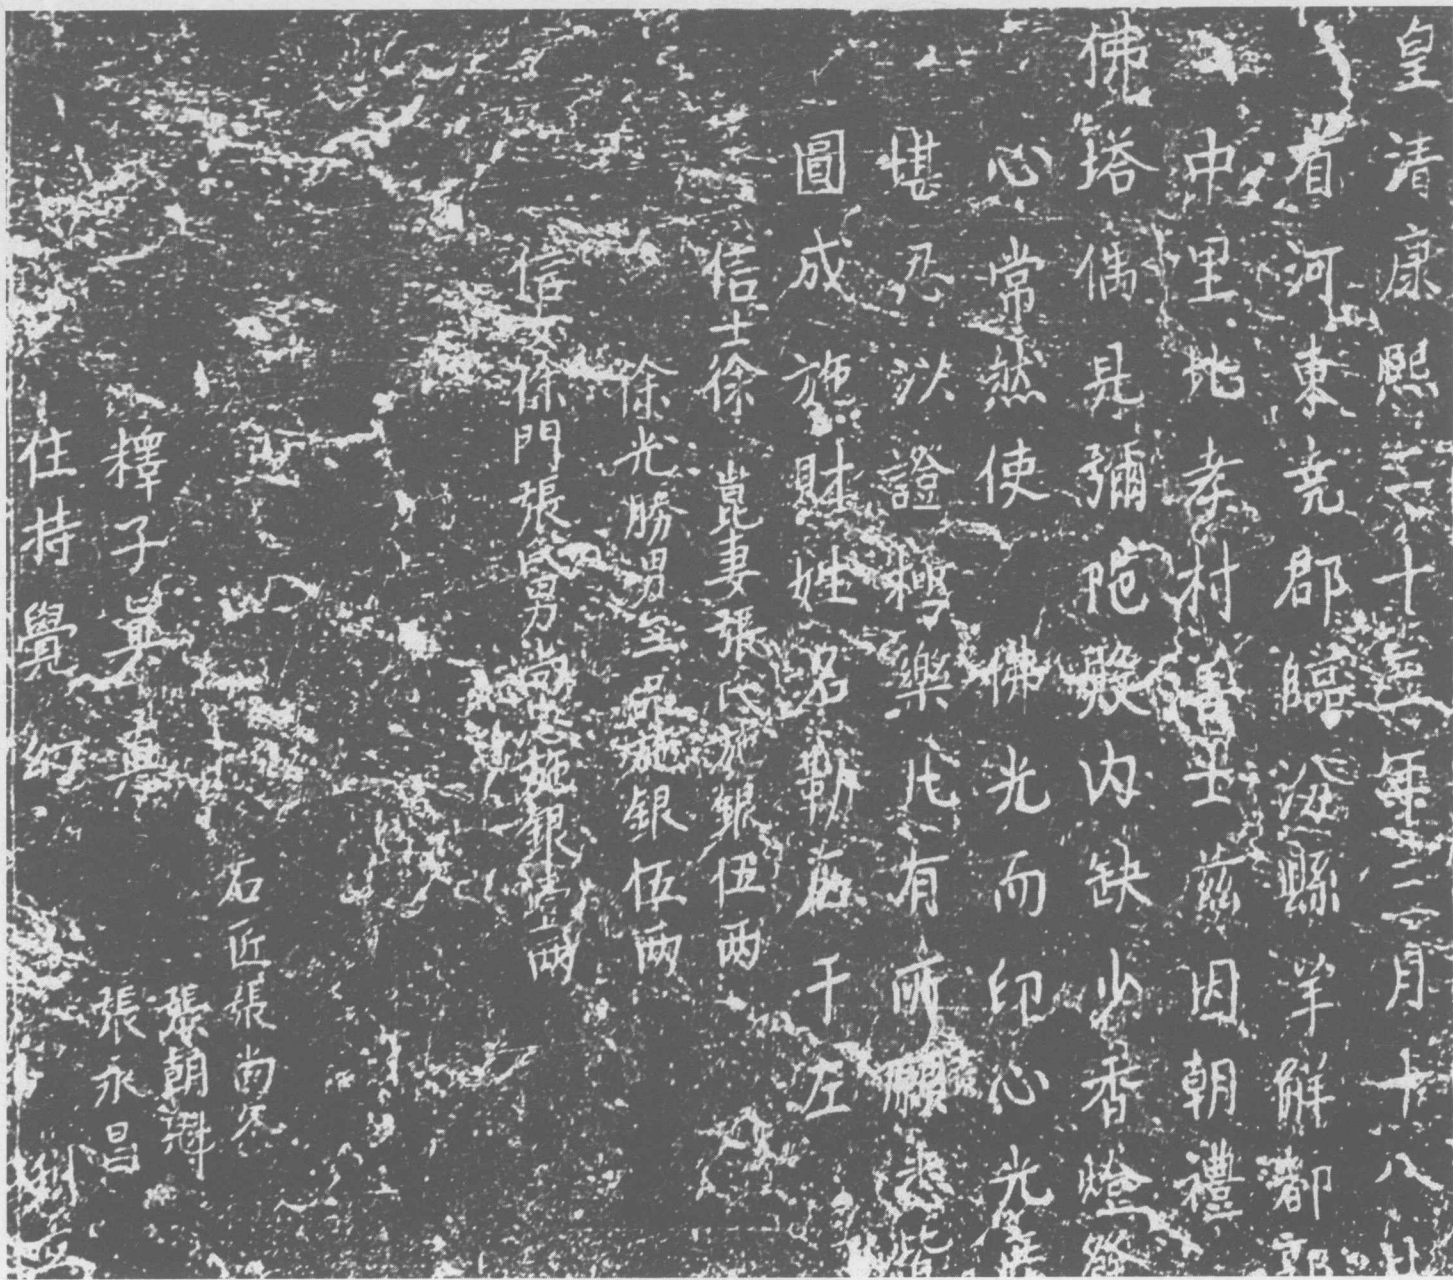 皇清康熙二十年三月十八日
省河東兗郡臨汾縣羊解都郭
中里北孝村善士茲因朝禮
佛塔偶見彌陀殿内缺少香燈發
心常然使佛光而印心光
堪忍以證極樂凡有所願悉皆
圓成施財姓名勒石于左
信士徐崑妻張氏施銀伍兩
徐光勝男全品施銀伍兩
信女徐門張氏男尚忠施銀壹兩
石匠張尚
張朝
張永昌
釋子真
住持覺幻